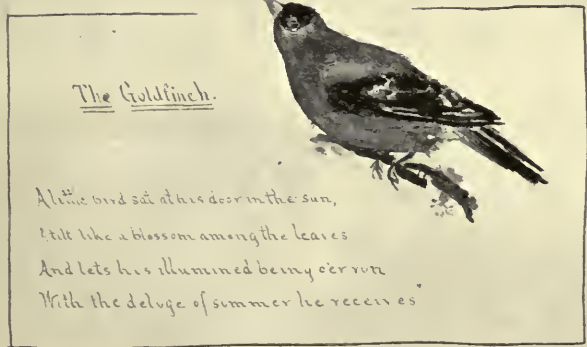 The Goldfinch.
A little bird sat at his door in the sun,
Atilt like a blossom among the leaves
And lets his illumined being o'er run
With the deluge of summer he receives"